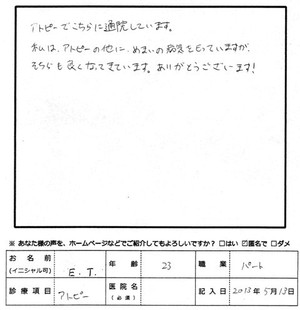 アトピーでこちらに通院しています。
私は、アトピーの他に、めまいの病気をもっていますが、
そちらも良くなってきています。ありがとうございます!
※ あなた様の声を、ホームページなどでご紹介してもよろしいですか? □はい ☑匿名で □ダメ
お名前 (イニシャル可) E.T. 年齢 23 職業 パート
診療項目 アトピー 医院名 (必須) 記入日 2013年5月13日